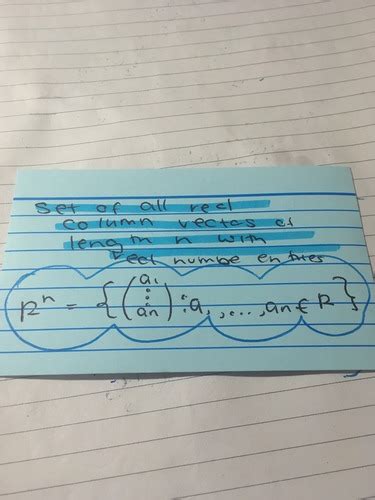 Set of all real
column vectos of
length n with
real numbe entries
Rⁿ = { (a₁ ⋮ aₙ) : a₁, ..., aₙ ∈ R }